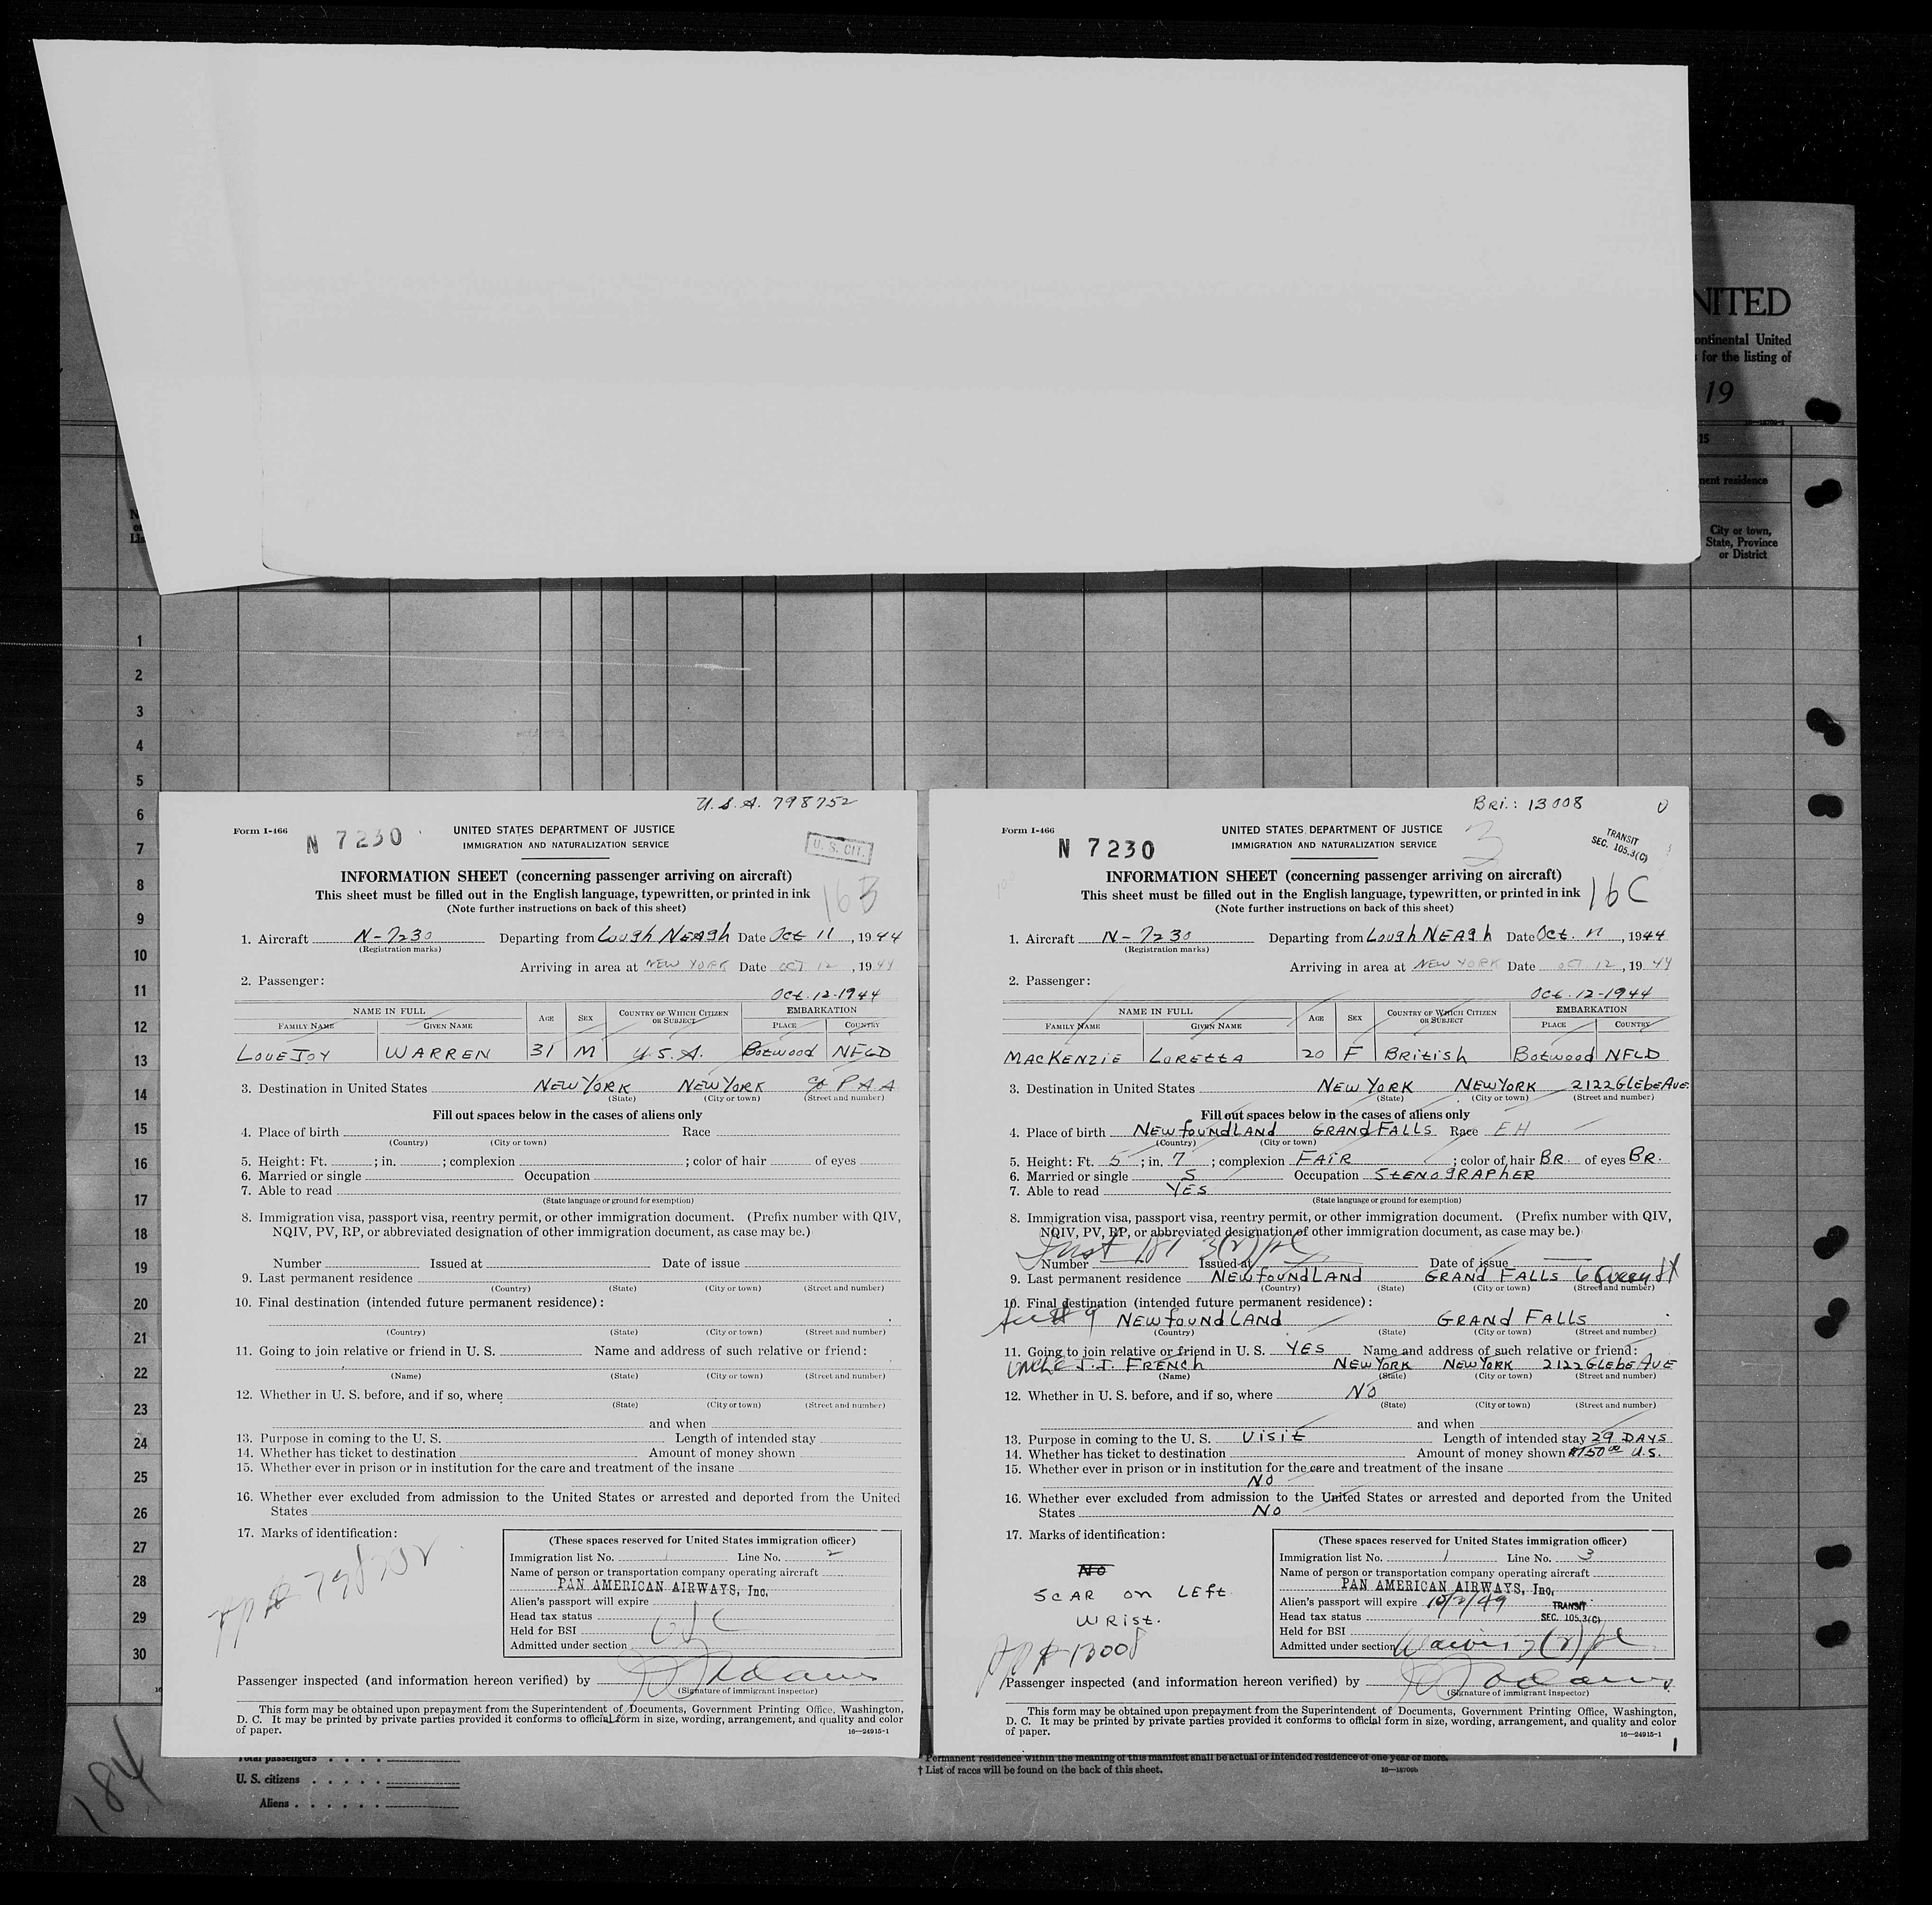 NITED
ontinental United
for the listing of
19
16—18706-1
15
nent residence
City or town,
State, Province
or District
1
2
3
4
5
6
7
8
9
10
11
12
13
14
15
16
17
18
19
20
21
22
23
24
25
26
27
28
29
30
U.S.A. 798752
Form I-466
N 7230
UNITED STATES DEPARTMENT OF JUSTICE
U. S. CIT.
IMMIGRATION AND NATURALIZATION SERVICE
INFORMATION SHEET (concerning passenger arriving on aircraft)
16B
This sheet must be filled out in the English language, typewritten, or printed in ink
(Note further instructions on back of this sheet)
1. Aircraft N-7230 Departing from Lough NEAgh Date Oct 11, 1944
(Registration marks)
Arriving in area at NEW YORK Date OCT 12, 1944
2. Passenger:
Oct. 12-1944
NAME IN FULL AGE SEX COUNTRY OF WHICH CITIZEN OR SUBJECT EMBARKATION
FAMILY NAME GIVEN NAME PLACE COUNTRY
LOVEJOY WARREN 31 M U.S.A. Botwood NFLD
3. Destination in United States NEW YORK NEW YORK % P A A
(State) (City or town) (Street and number)
Fill out spaces below in the cases of aliens only
4. Place of birth Race
(Country) (City or town)
5. Height: Ft. ; in. ; complexion ; color of hair of eyes
6. Married or single Occupation
7. Able to read
(State language or ground for exemption)
8. Immigration visa, passport visa, reentry permit, or other immigration document. (Prefix number with QIV,
NQIV, PV, RP, or abbreviated designation of other immigration document, as case may be.)
Number Issued at Date of issue
9. Last permanent residence
(Country) (State) (City or town) (Street and number)
10. Final destination (intended future permanent residence):
(Country) (State) (City or town) (Street and number)
11. Going to join relative or friend in U. S. Name and address of such relative or friend:
(Name) (State) (City or town) (Street and number)
12. Whether in U. S. before, and if so, where
(State) (City or town) (Street and number)
and when
13. Purpose in coming to the U. S. Length of intended stay
14. Whether has ticket to destination Amount of money shown
15. Whether ever in prison or in institution for the care and treatment of the insane
16. Whether ever excluded from admission to the United States or arrested and deported from the United
States
17. Marks of identification:
pp # 798752
(These spaces reserved for United States immigration officer)
Immigration list No. 1 Line No. 2
Name of person or transportation company operating aircraft
PAN AMERICAN AIRWAYS, Inc.
Alien's passport will expire
Head tax status
Held for BSI
Admitted under section
Passenger inspected (and information hereon verified) by
(Signature of immigrant inspector)
This form may be obtained upon prepayment from the Superintendent of Documents, Government Printing Office, Washington,
D. C. It may be printed by private parties provided it conforms to official form in size, wording, arrangement, and quality and color
of paper.
16—24915-1
BRI.: 13008
Form I-466
N 7230
UNITED STATES DEPARTMENT OF JUSTICE
3
TRANSIT
SEC. 105.3(C)
IMMIGRATION AND NATURALIZATION SERVICE
INFORMATION SHEET (concerning passenger arriving on aircraft)
16C
This sheet must be filled out in the English language, typewritten, or printed in ink
(Note further instructions on back of this sheet)
1. Aircraft N-7230 Departing from Lough NEAgh Date Oct. 11, 1944
(Registration marks)
Arriving in area at NEW YORK Date OCT 12, 1944
2. Passenger:
Oct. 12-1944
NAME IN FULL AGE SEX COUNTRY OF WHICH CITIZEN OR SUBJECT EMBARKATION
FAMILY NAME GIVEN NAME PLACE COUNTRY
MACKENZIE LORETTA 20 F BRITISH Botwood NFLD
3. Destination in United States NEW YORK NEW YORK 2122 GLEBE AVE
(State) (City or town) (Street and number)
Fill out spaces below in the cases of aliens only
4. Place of birth NEWFOUNDLAND GRAND FALLS Race EH
(Country) (City or town)
5. Height: Ft. 5; in. 7; complexion FAIR; color of hair BR. of eyes BR.
6. Married or single S Occupation STENOGRAPHER
7. Able to read YES
(State language or ground for exemption)
8. Immigration visa, passport visa, reentry permit, or other immigration document. (Prefix number with QIV,
NQIV, PV, RP, or abbreviated designation of other immigration document, as case may be.)
Number Issued at Date of issue
9. Last permanent residence NEWFOUNDLAND GRAND FALLS 6 Queen St
(Country) (State) (City or town) (Street and number)
10. Final destination (intended future permanent residence):
NEWFOUNDLAND GRAND FALLS
(Country) (State) (City or town) (Street and number)
11. Going to join relative or friend in U. S. YES Name and address of such relative or friend:
UNCLE J.J. FRENCH NEW YORK NEW YORK 2122 GLEBE AVE
(Name) (State) (City or town) (Street and number)
12. Whether in U. S. before, and if so, where NO
(State) (City or town) (Street and number)
and when
13. Purpose in coming to the U. S. VISIT Length of intended stay 29 DAYS
14. Whether has ticket to destination Amount of money shown $150.00 U.S.
15. Whether ever in prison or in institution for the care and treatment of the insane
NO
16. Whether ever excluded from admission to the United States or arrested and deported from the United
States NO
17. Marks of identification:
NO
SCAR ON LEFT
WRIST.
PP # 13008
(These spaces reserved for United States immigration officer)
Immigration list No. 1 Line No. 3
Name of person or transportation company operating aircraft
PAN AMERICAN AIRWAYS, Inc.
Alien's passport will expire 10/2/49 TRANSIT
Head tax status SEC. 105.3(C)
Held for BSI
Admitted under section
Passenger inspected (and information hereon verified) by
(Signature of immigrant inspector)
This form may be obtained upon prepayment from the Superintendent of Documents, Government Printing Office, Washington,
D. C. It may be printed by private parties provided it conforms to official form in size, wording, arrangement, and quality and color
of paper.
16—24915-1
184
Total passengers
U. S. citizens
Aliens
Permanent residence within the meaning of this manifest shall be actual or intended residence of one year or more.
† List of races will be found on the back of this sheet.